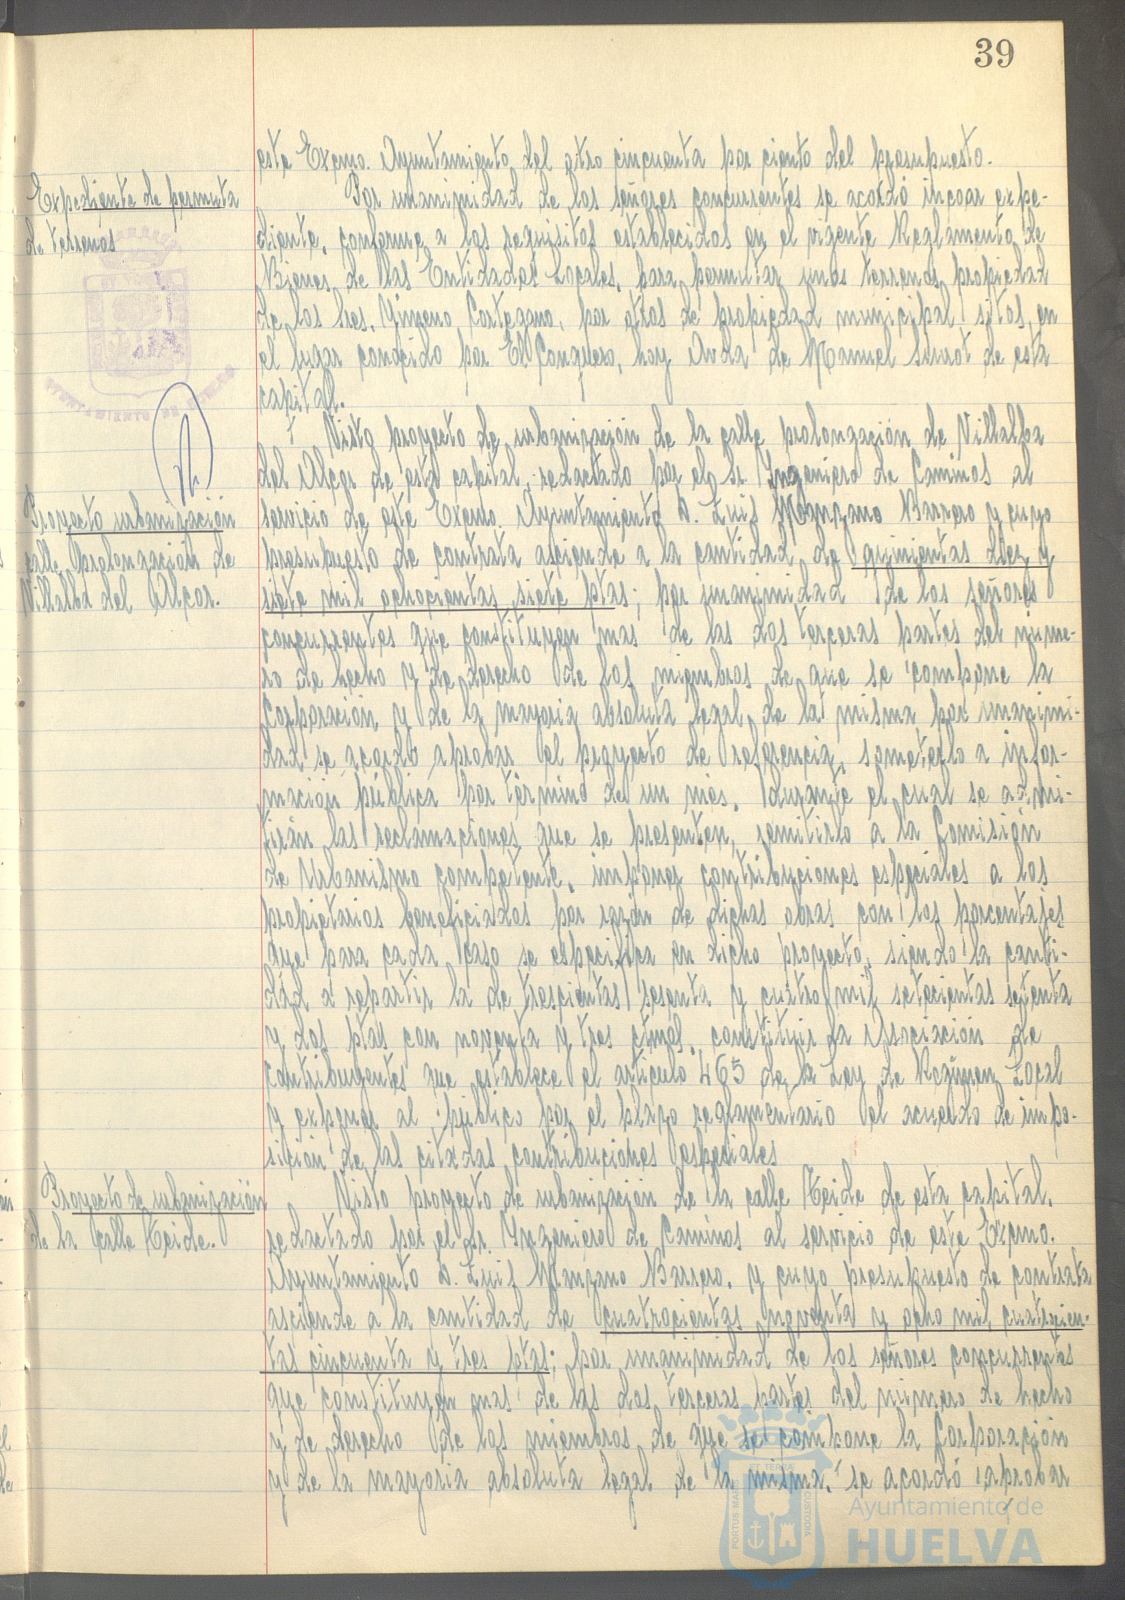 39
este Excmo. Ayuntamiento del otro cincuenta por ciento del presupuesto.
Expediente de permuta
de terrenos
Por unanimidad de los señores concurrentes se acordó incoar expe-
diente, conforme a los requisitos establecidos en el vigente Reglamento de
Bienes de las Entidades Locales, para permutar unos terrenos propiedad
de los Sres. por otros de propiedad municipal sitos en
el lugar conocido por El Conquero, hoy Avda de Manuel Siurot de esta
capital.
AYUNTAMIENTO DE HUELVA
Proyecto urbanización
calle Prolongación de
Villalba del Alcor.
Visto proyecto de urbanización de la calle prolongación de Villalba
del Alcor de esta capital, redactado por el Sr Ingeniero de Caminos al
servicio de este Excmo. Ayuntamiento D. Luis Manzano Barrero y cuyo
presupuesto de contrata asciende a la cantidad de quinientas diez y
siete mil ochocientas siete ptas; por unanimidad de los señores
concurrentes que constituyen mas de las dos terceras partes del núme-
ro de hecho y de derecho de los miembros de que se compone la
Corporación y de la mayoria absoluta legal de la misma por unanimi-
dad se acordó aprobar el proyecto de referencia, someterlo a infor-
mación pública por término de un mes. durante el cual se admi-
tirán las reclamaciones que se presenten, remitirlo a la Comisión
de Urbanismo competente, imponer contribuciones especiales a los
propietarios beneficiados por razón de dichas obras con los porcentajes
que para cada caso se especifica en dicho proyecto, siendo la canti-
dad a repartir la de trescientas sesenta y cuatro mil setecientas setenta
y dos ptas con noventa y tres ctmos, constituir la Asociación de
Contribuyentes que establece el articulo 465 de la Ley de Régimen Local
y exponer al público por el plazo reglamentario el acuerdo de impo-
sición de las citadas contribuciones especiales
Proyecto de urbanización
de la calle Teide.
Visto proyecto de urbanización de la calle Teide de esta capital,
redactado por el Sr. Yngeniero de Caminos al servicio de este Excmo.
Ayuntamiento D. Luis Manzano Barrero, y cuyo presupuesto de contrata
asciende a la cantidad de cuatrocientas noventa y ocho mil cuatrocien-
tas cincuenta y tres ptas; por unanimidad de los señores concurrentes
que constituyen mas de las dos terceras partes del número de hecho
y de derecho de los miembros de que se compone la Corporación
y de la mayoria absoluta legal de la misma, se acordó aprobar
PORTUS MARIS ET TERRA CUSTODIA
Ayuntamiento de
HUELVA